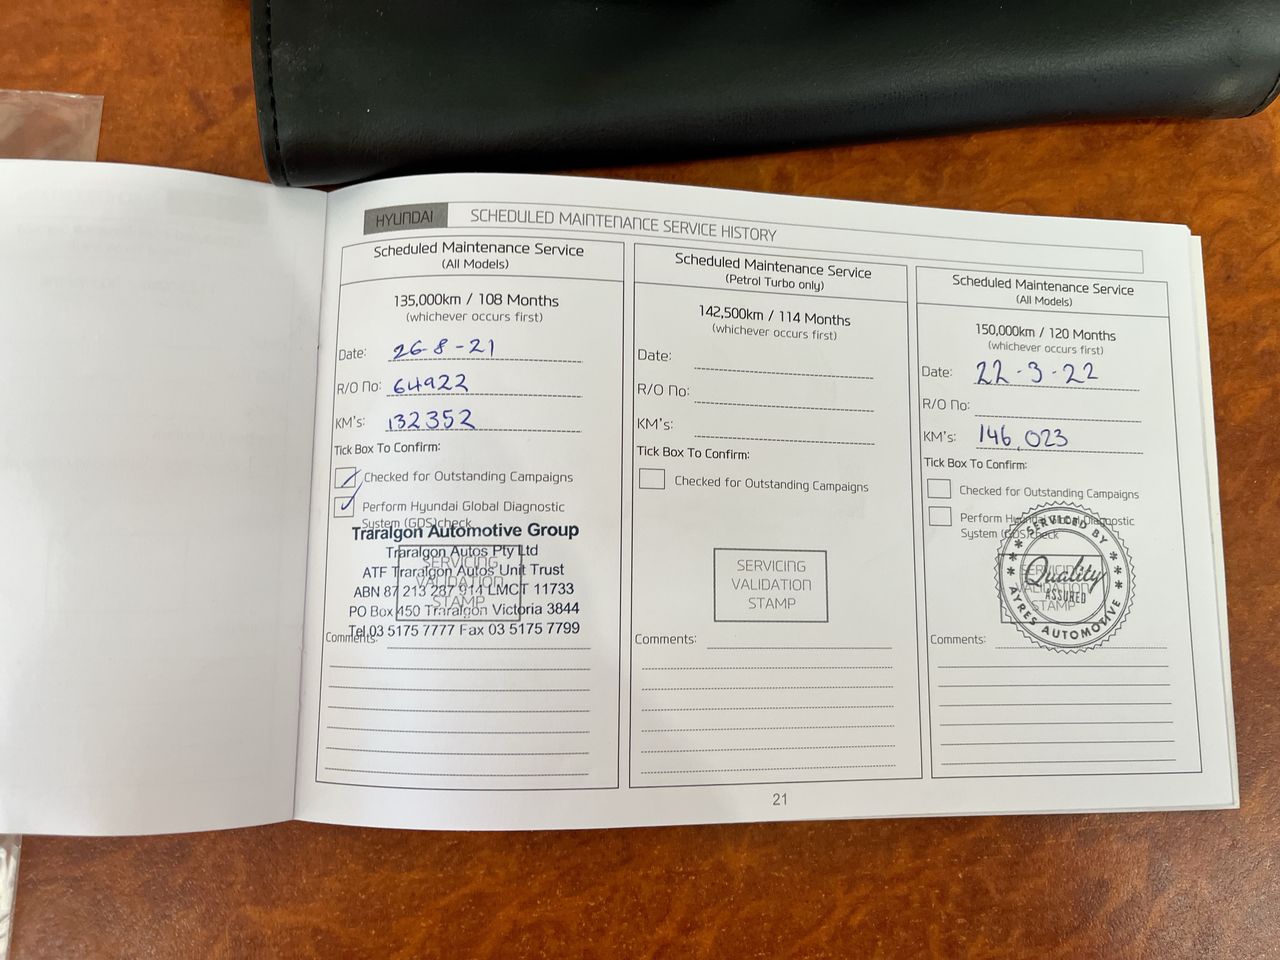 HYUNDAI SCHEDULED MAINTENANCE SERVICE HISTORY
Scheduled Maintenance Service
(All Models)
135,000km / 108 Months
(whichever occurs first)
Date: 26-8-21
R/O No: 64922
KM's: 132352
Tick Box To Confirm:
Checked for Outstanding Campaigns
Perform Hyundai Global Diagnostic
System (GDS)check
Traralgon Automotive Group
Traralgon Autos Pty Ltd
ATF Traralgon Autos Unit Trust
ABN 87 213 287 914 LMCT 11733
PO Box 450 Traralgon Victoria 3844
Tel 03 5175 7777 Fax 03 5175 7799
SERVICING
VALIDATION
STAMP
Comments:
Scheduled Maintenance Service
(Petrol Turbo only)
142,500km / 114 Months
(whichever occurs first)
Date:
R/O No:
KM's:
Tick Box To Confirm:
Checked for Outstanding Campaigns
SERVICING
VALIDATION
STAMP
Comments:
Scheduled Maintenance Service
(All Models)
150,000km / 120 Months
(whichever occurs first)
Date: 22-3-22
R/O No:
KM's: 146,023
Tick Box To Confirm:
Checked for Outstanding Campaigns
Perform Hyundai Global Diagnostic
System (GDS)check
SERVICING
VALIDATION
STAMP
SERVICED BY
Quality
ASSURED
AYRES AUTOMOTIVE
Comments:
21